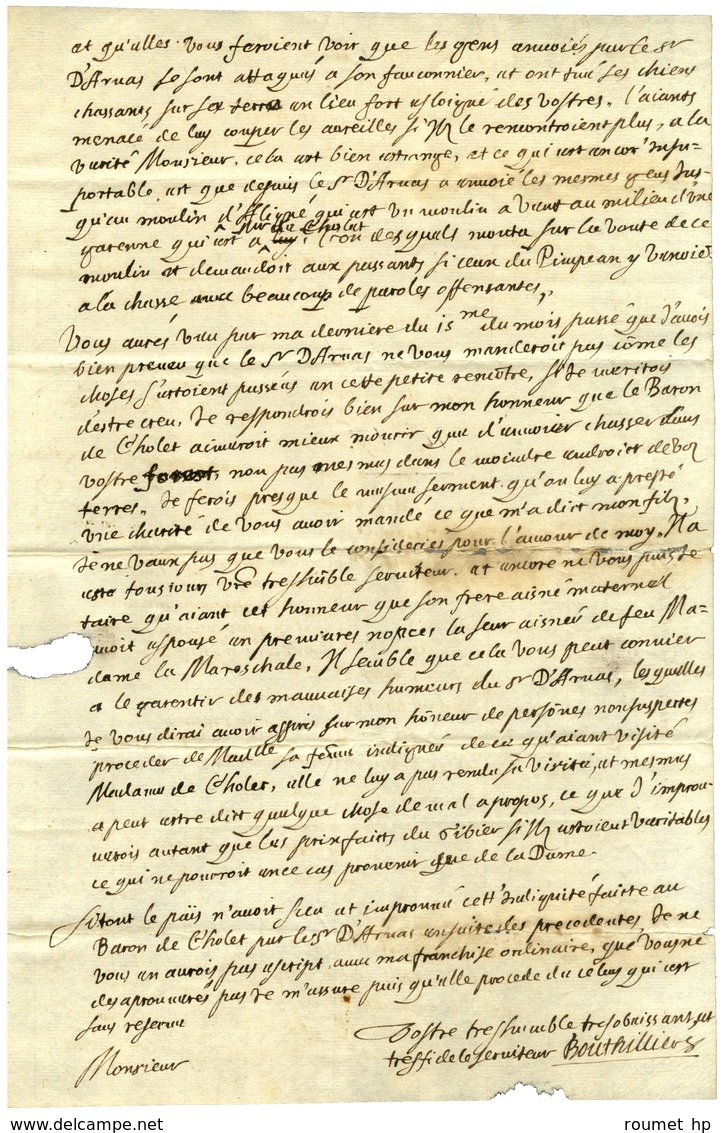 et qu'elles vous feroient voir que les gens anvoiés par le sr
D'Aruas se sont attaqués a son fauconnier, et ont tué ses chiens
chassants sur ses terres en lieu fort esloigné des vostres, l'aiants
menacé de luy couper les aureilles s'Ilz le rencontroient plus, a la
verité Monsieur, cela est bien estrange, et ce qui est ancor' Insu-
portable est que depuis le Sr D'Aruas a anvoié les mesmes gens Jus-
qu'au moulin d'Aligné qui est un moulin a vant au milieu d'une
sr de Cholet
garenne qui est a l'un desquels monta sur la voute de ce
moulin et demandoit aux passants si ceux du Pimpean y venoient
a la chasse avec beaucoup de paroles offensantes,
Vous aurés veu par ma derniere du 15me du mois passé que J'avois
bien preveu que le Sr D'Aruas ne vous manderoit pas come les
choses s'estoient passées en cette petite rencôtre, si Je meritois
d'estre creu, Je respondrois bien sur mon honneur que le Baron
de Cholet aimeroit mieux mourir que d'anvoier chasser dans
vostre forest, non pas mesmes dans le moindre androict de voz
terres. Je ferois presque le mesme serment qu'on luy a presté
une charité de vous avoir mandé ce que m'a dict mon filz,
Je ne veux pas que vous le consideriés pour l'amour de moy, Il a
esté tousiours vre tres humble serviteur, et ancore ne vous puis Je
taire qu'aiant cet honneur que son frere aisné maternel
avoit espousé en premieres nopces la seur aisnée de feu Ma-
dame la Mareschale, Il semble que cela vous peut convier
a le garentir des mauvaises humeurs du Sr D'Aruas, lesquelles
Je vous dirai avoir appris sur mon hôneur de persônes non suspectes
proceder de Madlle sa feme indignée de ce qu'aiant visité
Madame de Cholet, elle ne luy a pas rendu sa visite, et mesmes
a peut estre dict quelque chose de mal a propos, ce que J'improu-
verois autant que les prixfaicts du Gibier s'Ilz estoient veritables
ce qui ne pourroit ance cas provenir que de la Dame.
Si tout le païs n'avoit sceu et improuvé cett' Indignité faicte au
Baron de Cholet par le Sr D'Aruas ansuite des precedentes Je ne
vous en aurois pas escript avec ma franchise ordinaire, que vous ne
desaprouverés pas Je m'assure puis qu'elle procede de celuy qui est
sans reserve
Vostre tres humble tres obeissant, et
tres fidele serviteur Bouthillier
Monsieur
© roumet hp